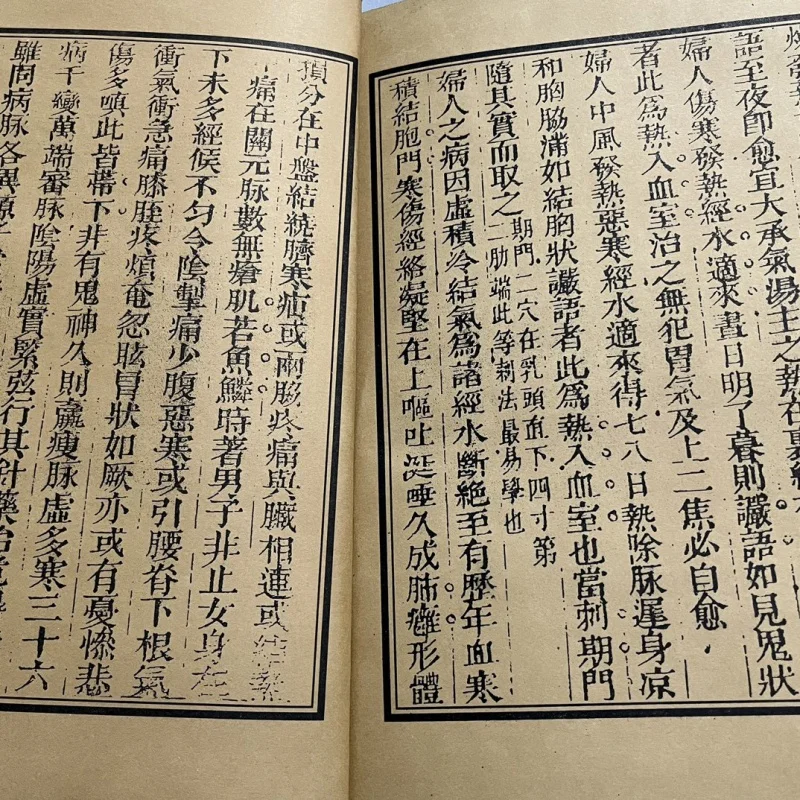 語至夜即愈宜大承氣湯主之熱在裏
婦人傷寒發熱經水適來晝日明了暮則讝語如見鬼狀
者此爲熱入血室治之無犯胃氣及上二焦必自愈
婦人中風發熱惡寒經水適來得七八日熱除脉遲身凉
和胸脇滿如結胸狀讝語者此爲熱入血室也當刺期門
隨其實而取之期門二穴在乳頭直下四寸第
二肋端此等刺法最易學也
婦人之病因虛積冷結氣爲諸經水斷絕至有歷年血寒
積結胞門寒傷經絡凝堅在上嘔吐涎唾久成肺癰形體
損分在中盤結繞臍寒疝或兩脇疼痛與臟相連或結
痛在關元脉數無瘡肌若魚鱗時著男子非止女身在
下未多經候不匀令陰掣痛少腹惡寒或引腰脊下根氣
衝氣衝急痛膝脛疼煩奄忽眩冒狀如厥亦或有憂慘悲
傷多嗔此皆帶下非有鬼神久則羸瘦脉虛多寒三十六
病千變萬端審脉陰陽虛實緊弦行其針藥治
雖同病脉各異源